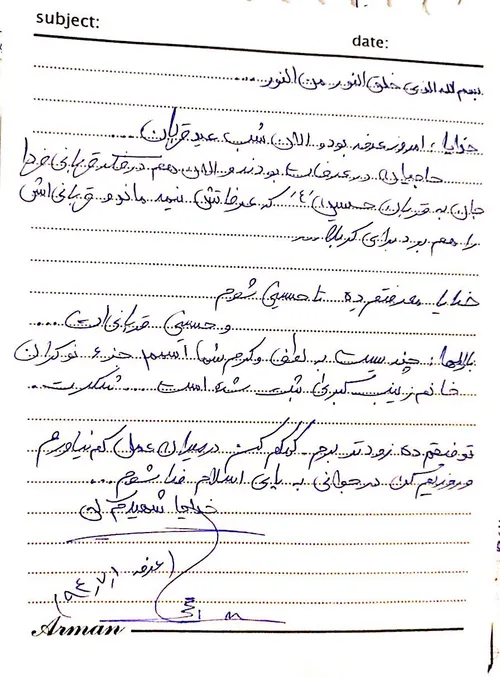 subject:
date:
بسم الله الذی خلق النور من النور ...
خدایا، امروز عرفه بود و الان شب عید قربان ....
حاجیان در عرفات بودند و الان هم در فکر قربانی فردا
جان به قربان حسین (ع) که عرفاتش نیمه ماند و قربانی اش
را هم برد برای کربلا ...
خدایا معرفتم ده تا حسینی شوم
و حسینی قربانی ات ....
بارالها، چند بیست به لطف و کرم شما اسمم جزء نوکران
خانم زینب کبری ثبت شده است .... شکرت ..
توفیقم ده زودتر بروم کمکم کن در میدان عمل کم نیاورم
و روزیم کن در جوانی به پای اسلام فدا شوم ...
خدایا شهیدم کن
(عرفه ۹۴/۷/۱)
Arman